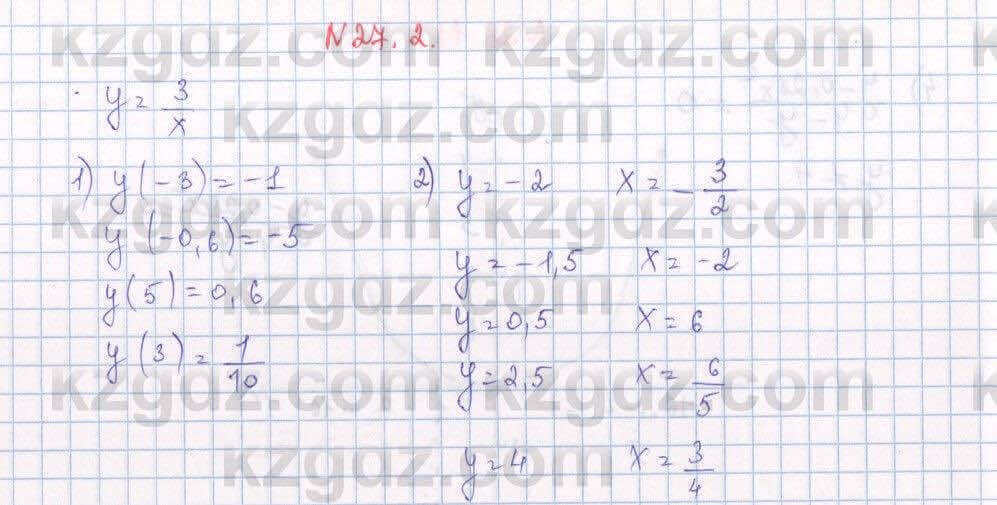 N 27. 2.
y = 3/x
1) y(-3) = -1
y(-0,6) = -5
y(5) = 0,6
y(3) = 1/10
2) y = -2 x = -3/2
y = -1,5 x = -2
y = 0,5 x = 6
y = 2,5 x = 6/5
y = 4 x = 3/4
kzgdz.com
kzgdz.com
kzgdz.com
kzgdz.com
kzgdz.com
kzgdz.com
kzgdz.com
kzgdz.com
kzgdz.com